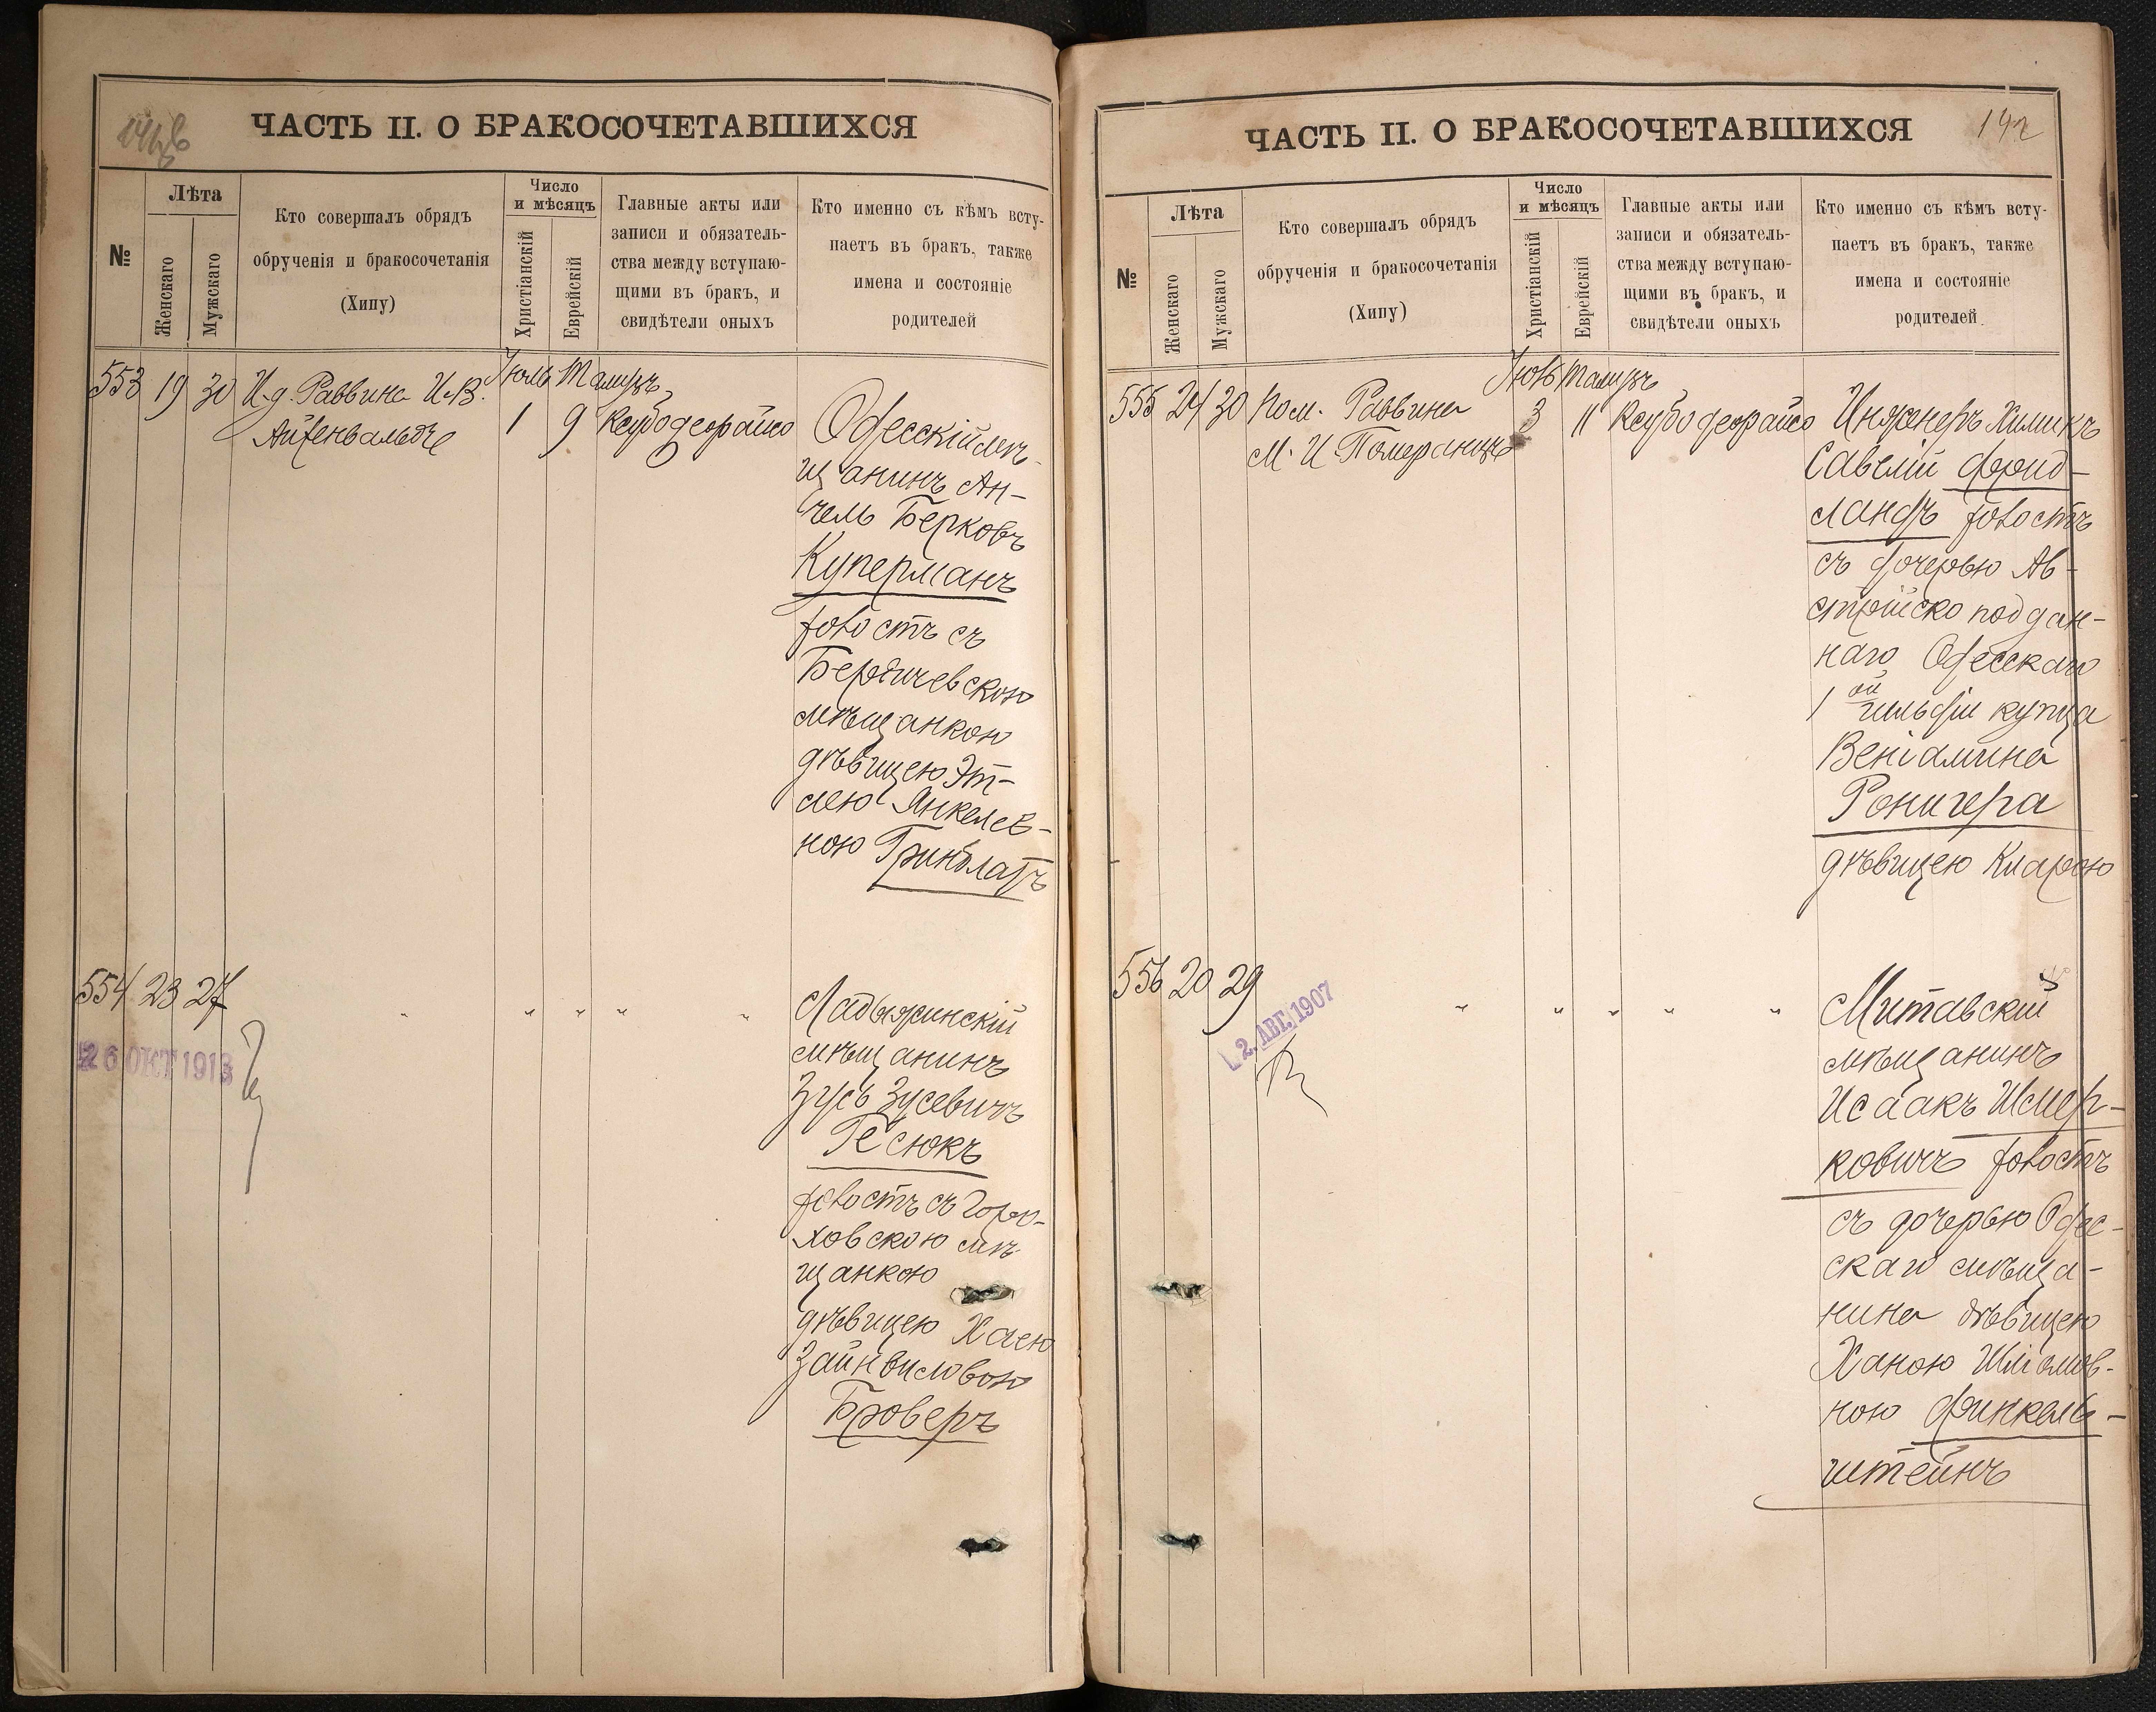 ЧАСТЬ II. О БРАКОСОЧЕТАВШИХСЯ
№
Лѣта
Женскаго
Мужскаго
Кто совершалъ обрядъ
обрученія и бракосочетанія
(Хипу)
Число
и мѣсяцъ
Христіанскій
Еврейскій
Главные акты или
записи и обязатель-
ства между вступаю-
щими въ бракъ, и
свидѣтели оныхъ
Кто именно съ кѣмъ всту-
паетъ въ бракъ, также
имена и состояніе
родителей
Іюль Тамузъ
553 19 30 И.д. Раввина И.В.
Айзенвальдъ
1 9 Ксубодеорайсо
Одесскій мѣ-
щанинъ Ан-
чель Берковъ
Куперманъ
холостъ съ
Бердичевскою
мѣщанкою
дѣвицею Эт-
лею Янкелев-
ною Гринблатъ
554 23 27 " " " " " "
26 ОКТ 1913
Ладыжинскій
мѣщанинъ
Зусь Зусевичъ
Гесюкъ
холостъ съ Горо-
ховскою мѣ-
щанкою
дѣвицею Хаею
Зайнвиловою
Броверъ
ЧАСТЬ II. О БРАКОСОЧЕТАВШИХСЯ
142
№
Лѣта
Женскаго
Мужскаго
Кто совершалъ обрядъ
обрученія и бракосочетанія
(Хипу)
Число
и мѣсяцъ
Христіанскій
Еврейскій
Главные акты или
записи и обязатель-
ства между вступаю-
щими въ бракъ, и
свидѣтели оныхъ
Кто именно съ кѣмъ всту-
паетъ въ бракъ, также
имена и состояніе
родителей
Іюль Тамузъ
555 24 30 Пом. Раввина
М. И. Померанцъ
3 11 Ксубодеорайсо
Инженеръ Химикъ
Савелій Фрид-
ландъ холостъ
съ дочерью Ав-
стрійско поддан-
наго Одесскаго
1ой гильдіи купца
Веніамина
Ронигера
дѣвицею Кларою
556 20 29 " " " " "
2. АВГ. 1907
Митавскій
мѣщанинъ
Исаакъ Шмер-
ковичъ холостъ
съ дочерью Одес-
скаго мѣща-
нина дѣвицею
Ханою Шліомов-
ною Финкель-
штейнъ